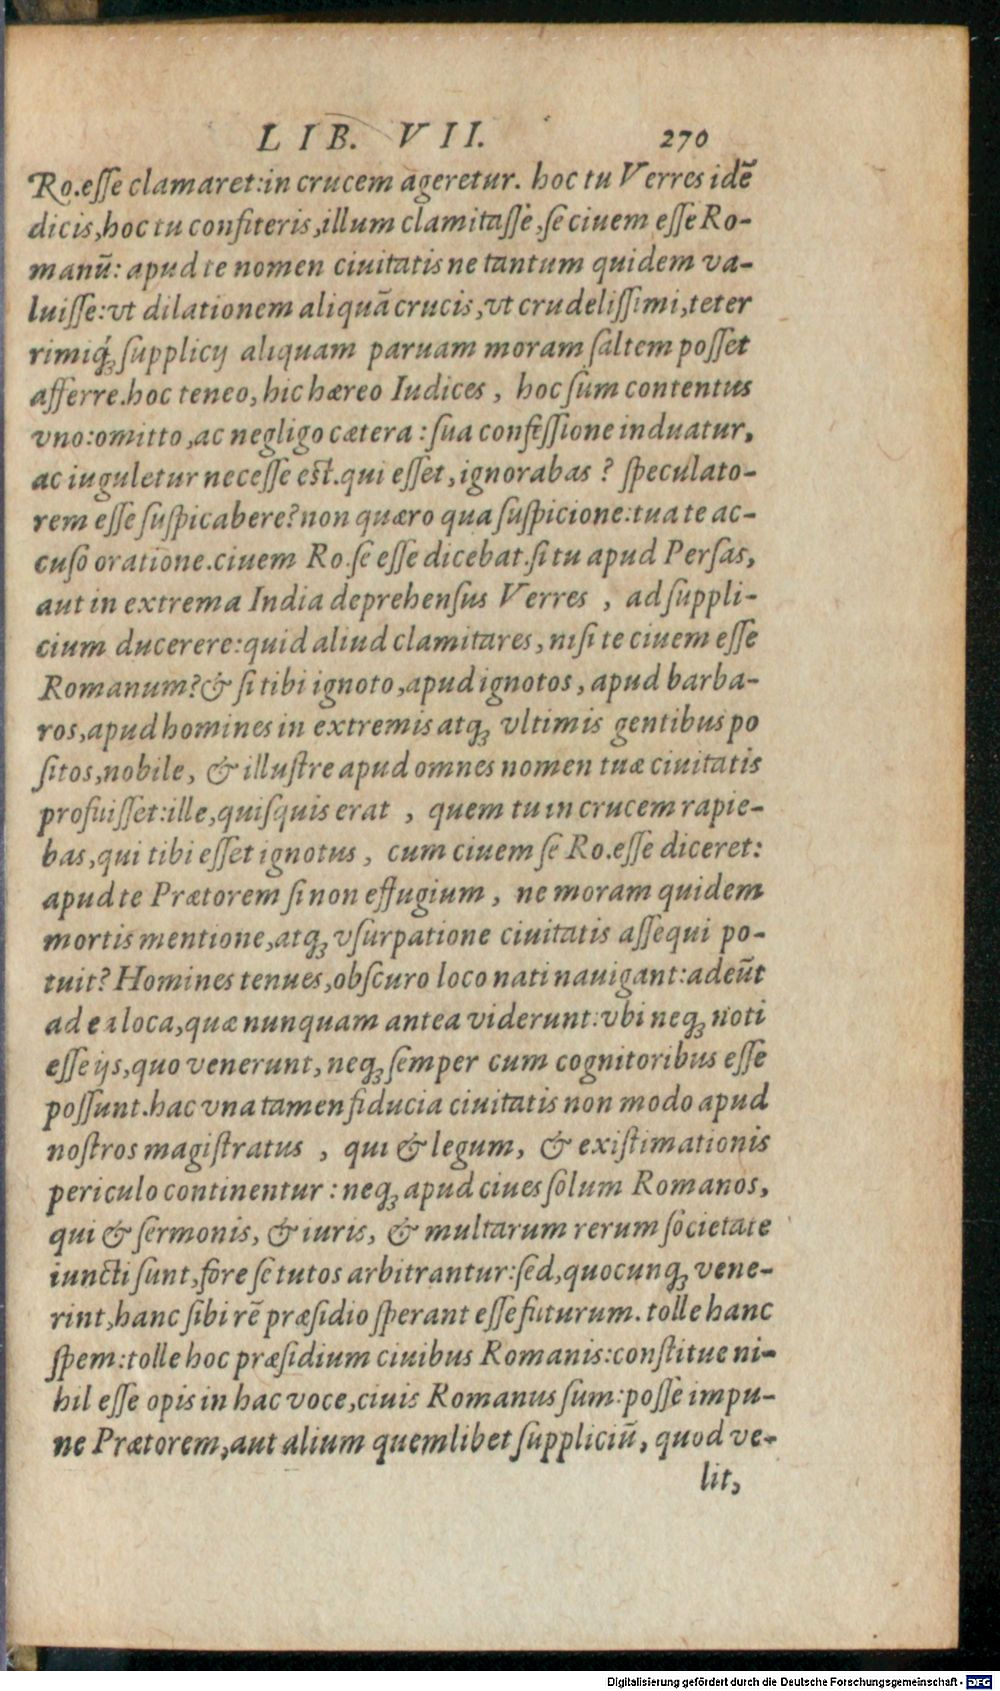 LIB. VII. 270
Ro.eſſe clamaret:in crucem ageretur. hoc tu Verres idē
dicis,hoc tu confiteris,illum clamitaſſe,ſe ciuem eſſe Ro-
manū: apud te nomen ciuitatis ne tantum quidem va-
luiſſe:vt dilationem aliquā crucis,vt crudeliſſimi,teter
rimiq́ꝫ ſupplicij aliquam paruam moram ſaltem poſſet
afferre.hoc teneo, hic hæreo Iudices, hoc ſum contentus
vno:omitto,ac negligo cætera: ſua confeſſione induatur,
ac iuguletur neceſſe eſt.qui eſſet,ignorabas? ſpeculato-
rem eſſe ſuſpicabere?non quæro qua ſuſpicione:tua te ac-
cuſo oratione.ciuem Ro.ſe eſſe dicebat.ſi tu apud Perſas,
aut in extrema India deprehenſus Verres, ad ſuppli-
cium ducerere:quid aliud clamitares, niſi te ciuem eſſe
Romanum?& ſi tibi ignoto,apud ignotos, apud barba-
ros,apud homines in extremis atqꝫ vltimis gentibus po
ſitos,nobile, & illuſtre apud omnes nomen tuæ ciuitatis
profuiſſet:ille,quiſquis erat, quem tu in crucem rapie-
bas,qui tibi eſſet ignotus, cum ciuem ſe Ro.eſſe diceret:
apud te Prætorem ſi non effugium, ne moram quidem
mortis mentione,atqꝫ vſurpatione ciuitatis aſſequi po-
tuit? Homines tenues,obſcuro loco nati nauigant:adeūt
ad ea loca,quæ nunquam antea viderunt:vbi neqꝫ noti
eſſe ijs,quo venerunt, neqꝫ ſemper cum cognitoribus eſſe
poſſunt.hac vna tamen fiducia ciuitatis non modo apud
noſtros magiſtratus, qui & legum, & exiſtimationis
periculo continentur: neqꝫ apud ciues ſolum Romanos,
qui & ſermonis, & iuris, & multarum rerum ſocietate
iuncti ſunt,fore ſe tutos arbitrantur:ſed,quocunqꝫ vene-
rint,hanc ſibi rē præſidio ſperant eſſe futurum. tolle hanc
ſpem:tolle hoc præſidium ciuibus Romanis:conſtitue ni-
hil eſſe opis in hac voce,ciuis Romanus ſum:poſſe impu-
ne Prætorem,aut alium quemlibet ſuppliciū, quod ve-
lit,
Digitalisierung gefördert durch die Deutsche Forschungsgemeinschaft - DFG